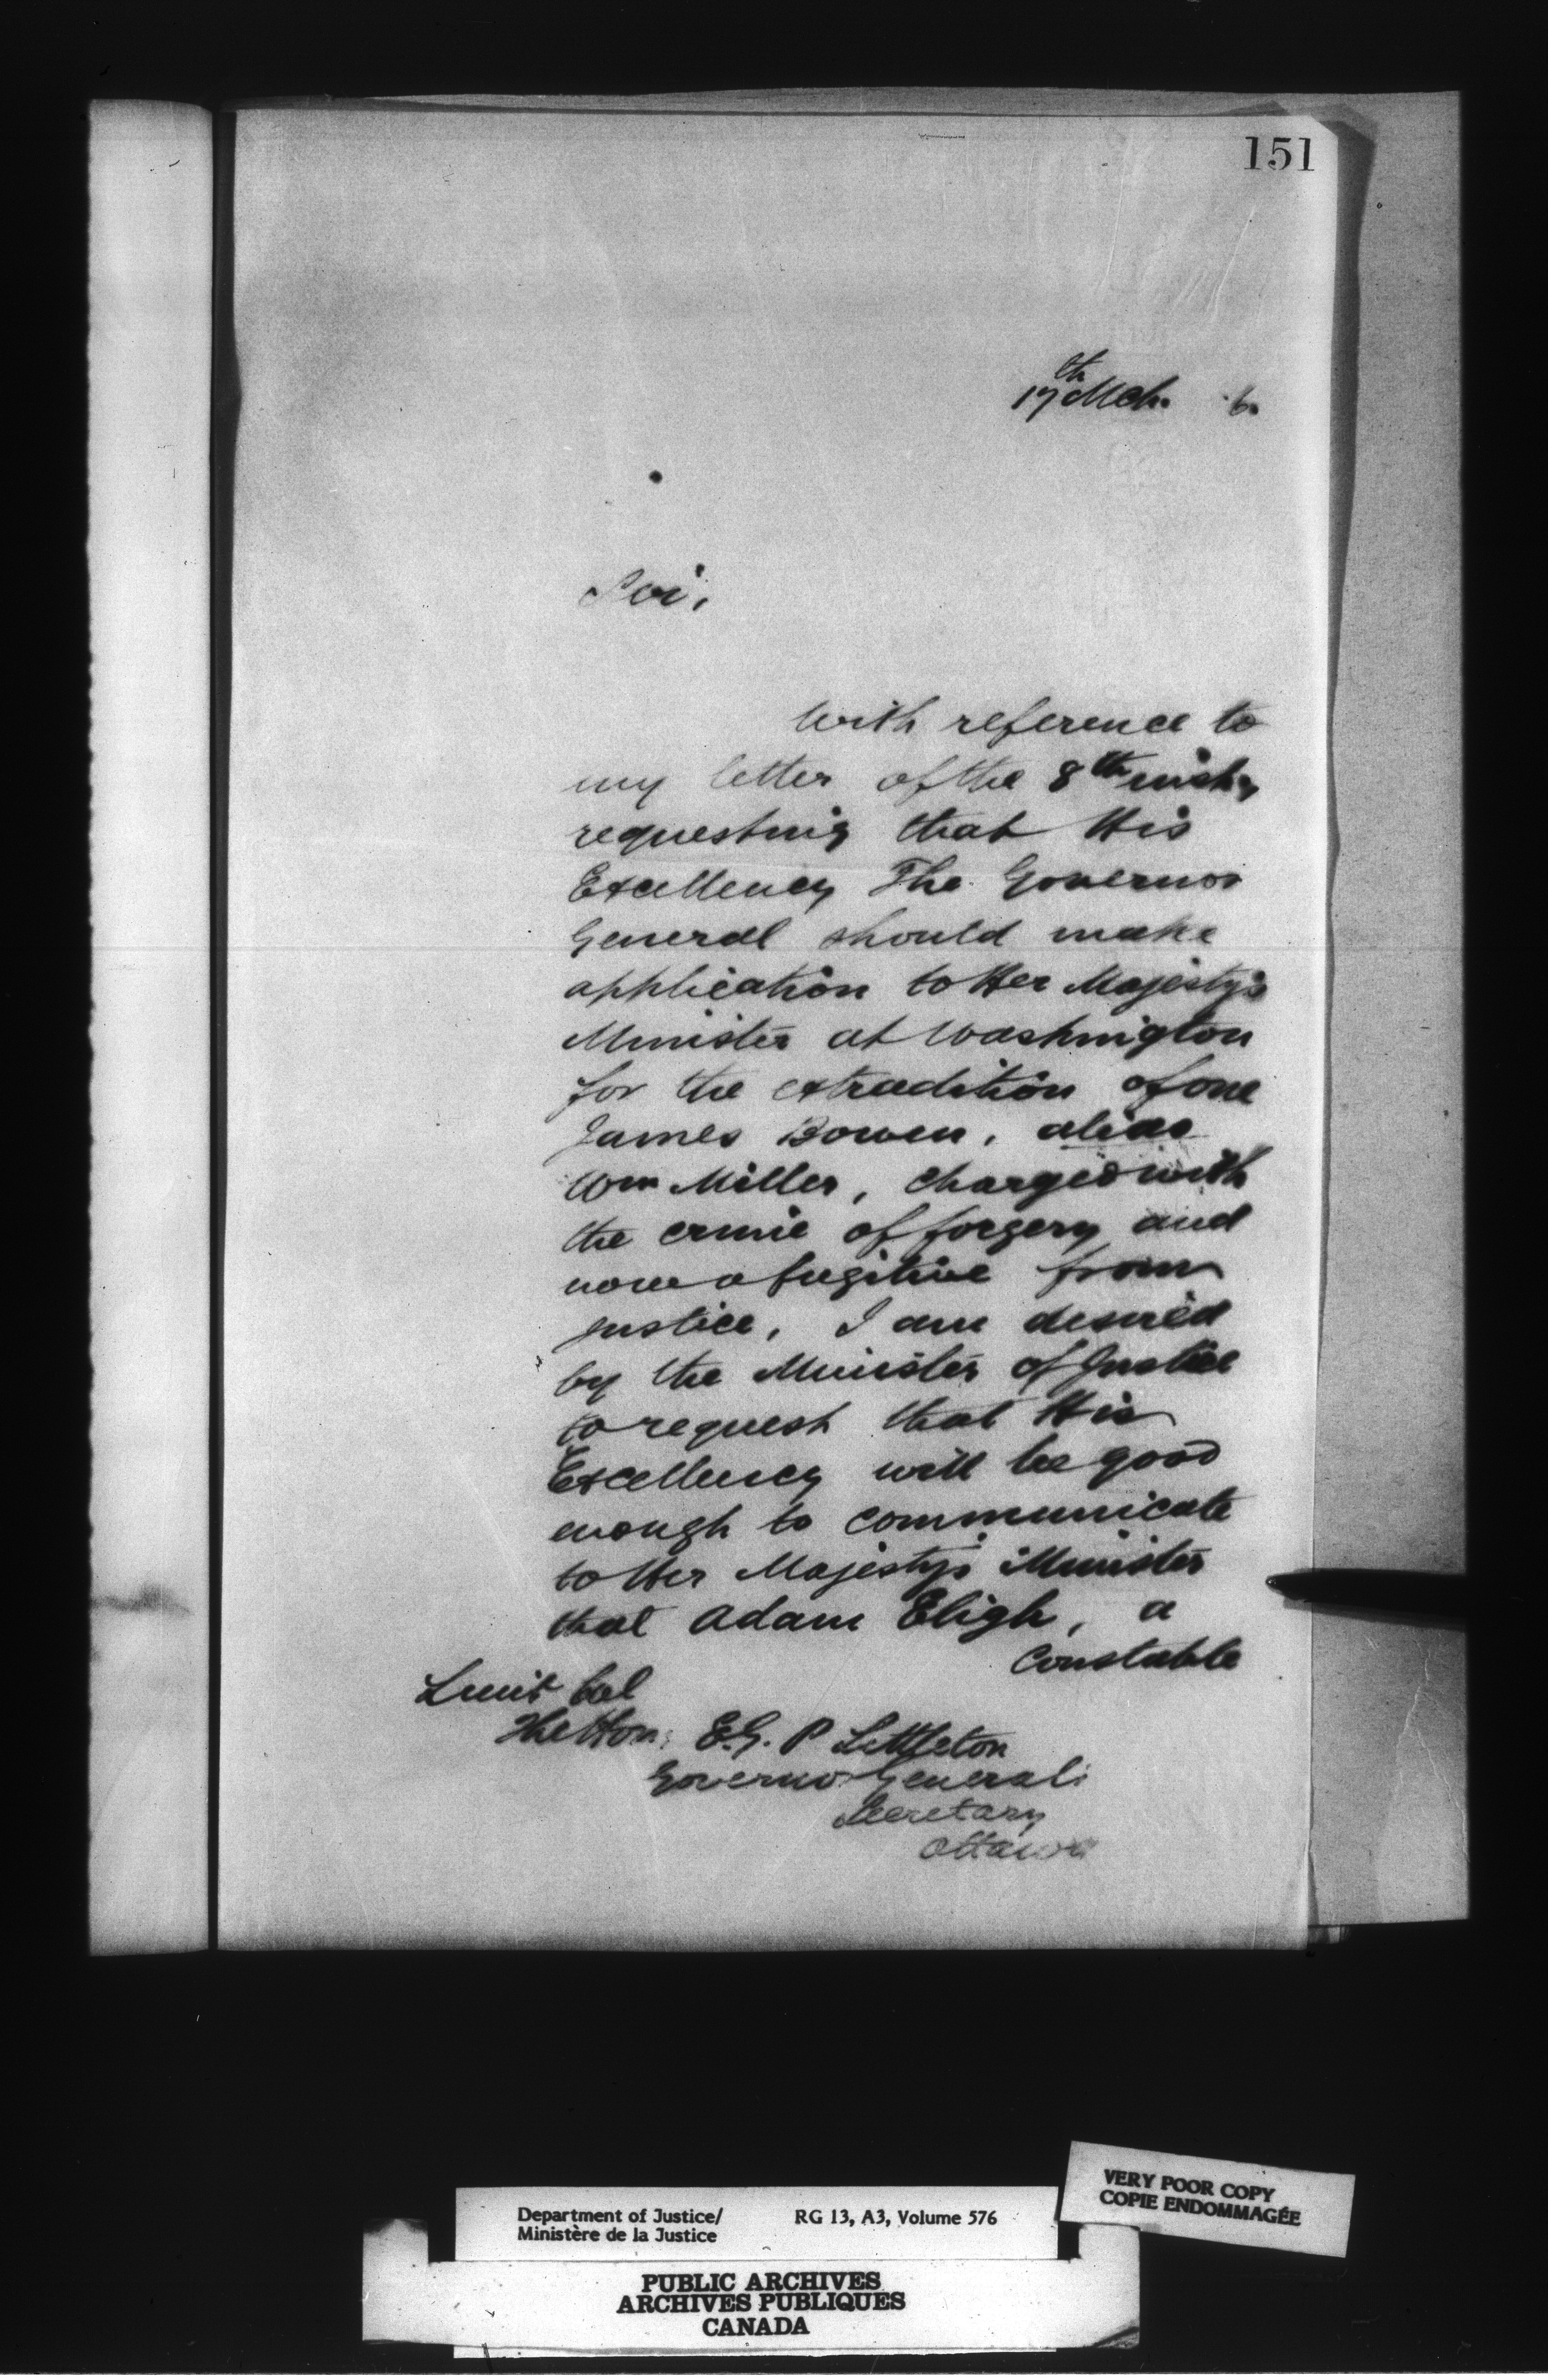 151
17th Mch. 6.
Sir,
With reference to
my letter of the 8th inst.,
requesting that His
Excellency The Governor
General should make
application to Her Majesty's
Minister at Washington
for the extradition of one
James Bowen, alias
Wm Miller, charged with
the crime of forgery and
now a fugitive from
justice, I am desired
by the Minister of Justice
to request that His
Excellency will be good
enough to communicate
to Her Majesty's Minister
that Adam Eligh, a
Constable
Lieut Col
The Hon: E.G.P Littleton
Governor General's
Secretary
Ottawa
VERY POOR COPY
COPIE ENDOMMAGÉE
Department of Justice/ RG 13, A3, Volume 576
Ministère de la Justice
PUBLIC ARCHIVES
ARCHIVES PUBLIQUES
CANADA